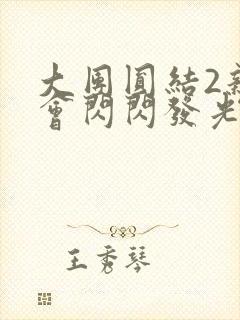 大團圓結2新
會閃閃發光
王秀琴